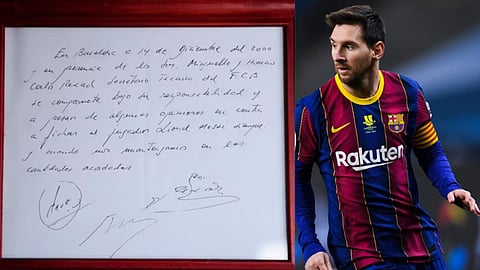 En Barcelona a 14 de diciembre del 2000
y en presencia de los Sres. Minguella y Horacio
Carles Rexach Secretario Técnico del F.C.B
se compromete bajo su responsabilidad y
a pesar de algunas opiniones en contra
a fichar al jugador Lionel Messi siempre
y cuando nos mantengamos en las
cantidades acordadas
Rakuten